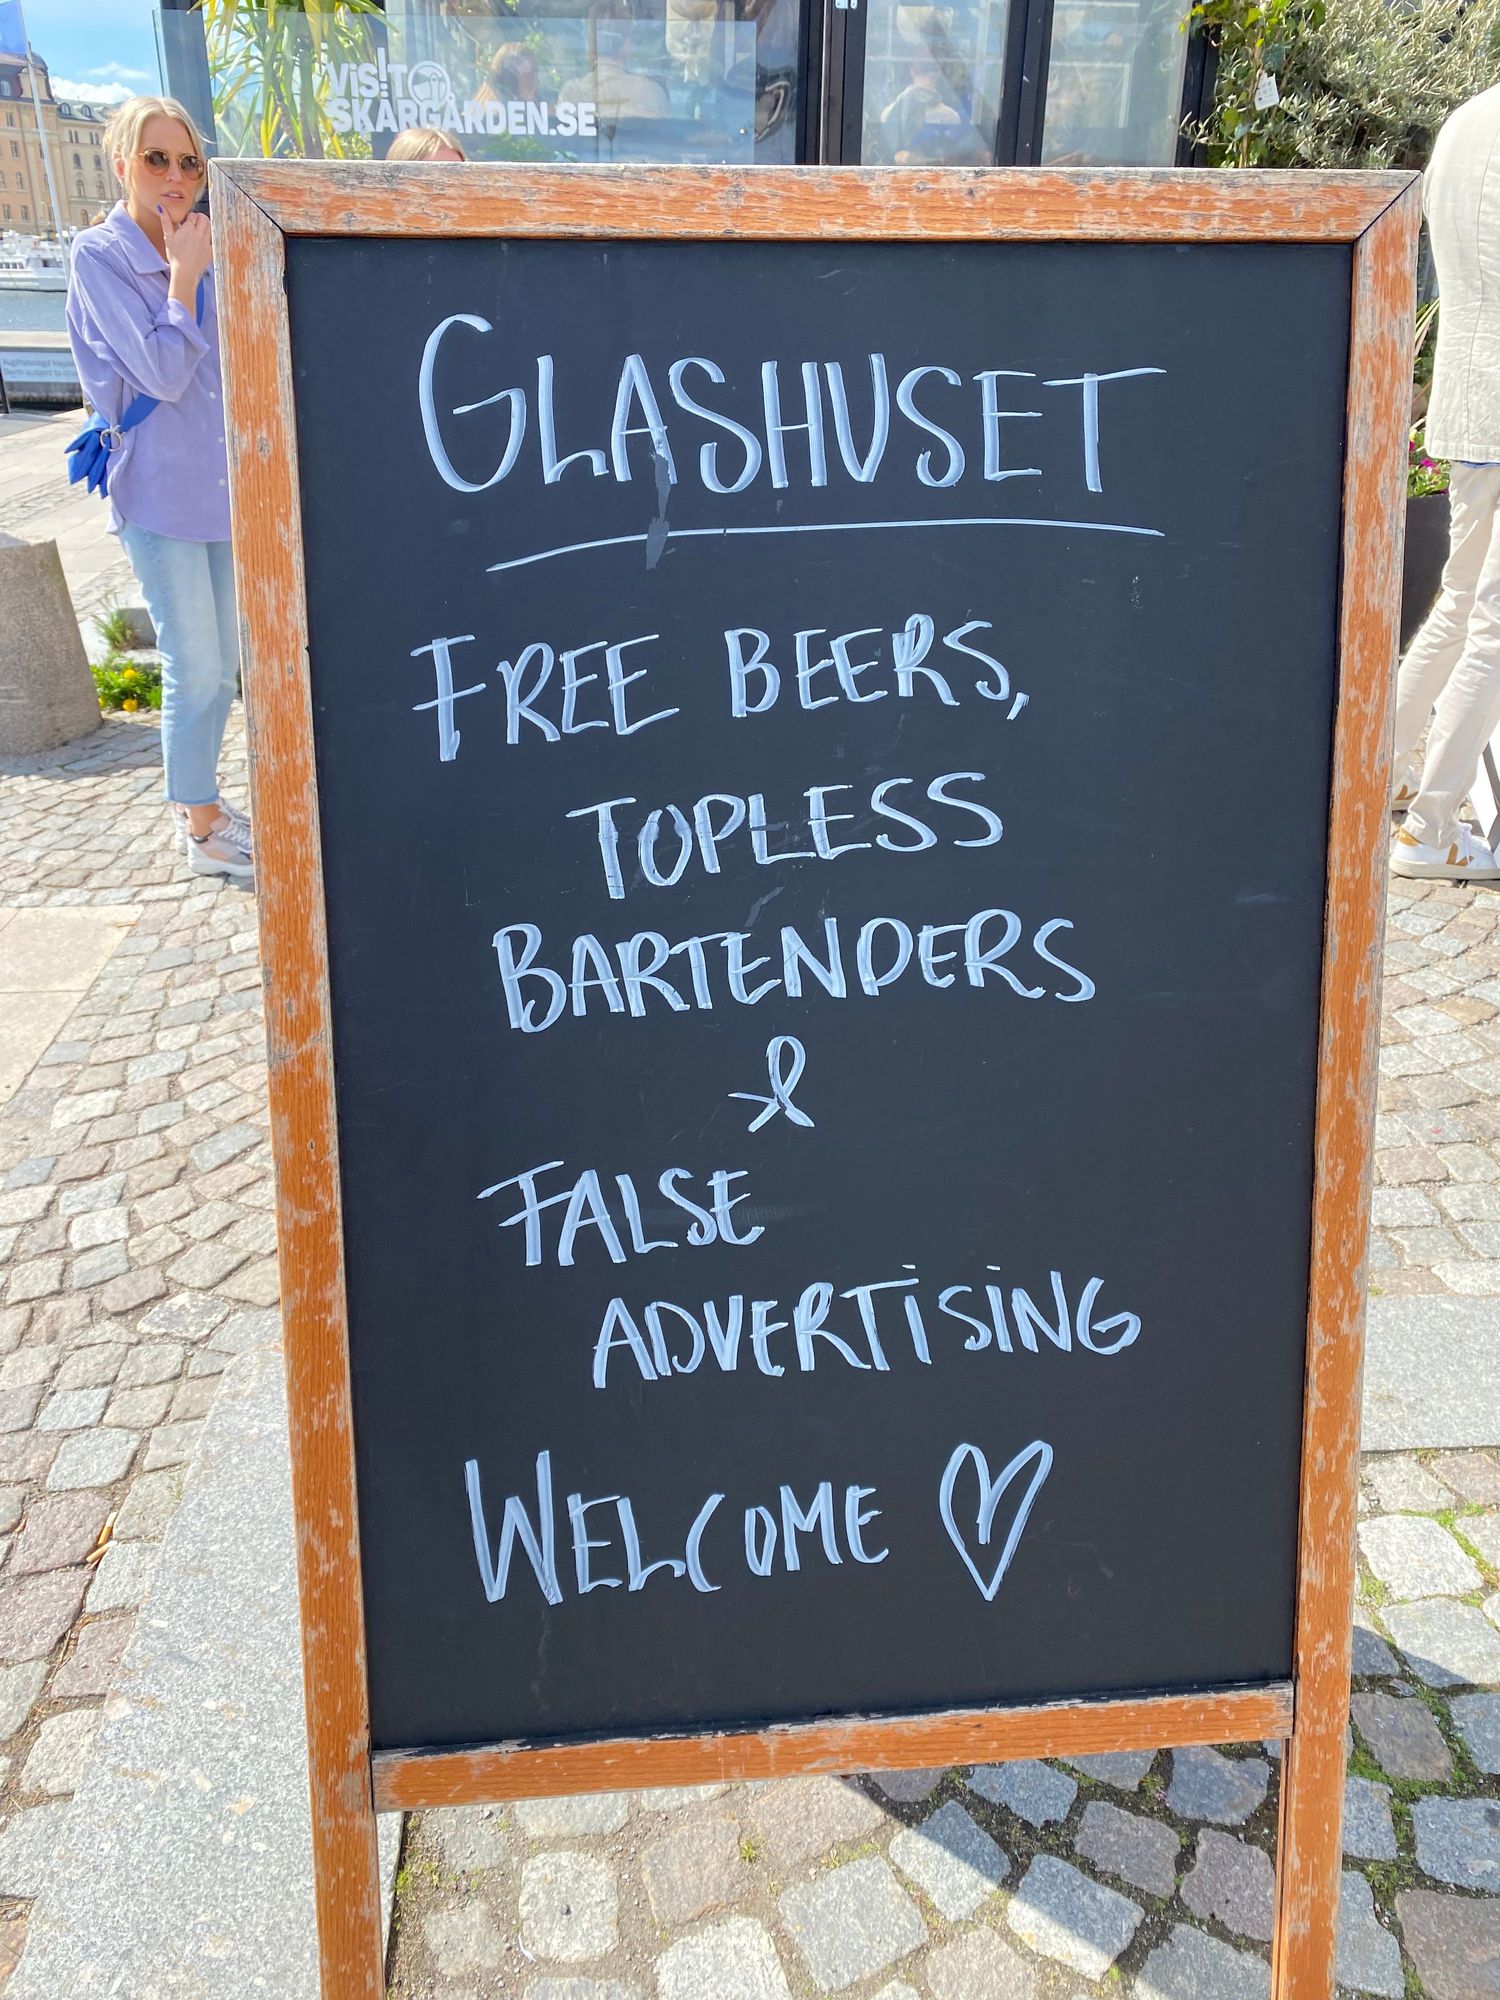 VISIT
SKÄRGÅRDEN.SE
GLASHUSET
FREE BEERS,
TOPLESS
BARTENDERS
&
FALSE
ADVERTISING
WELCOME ♡